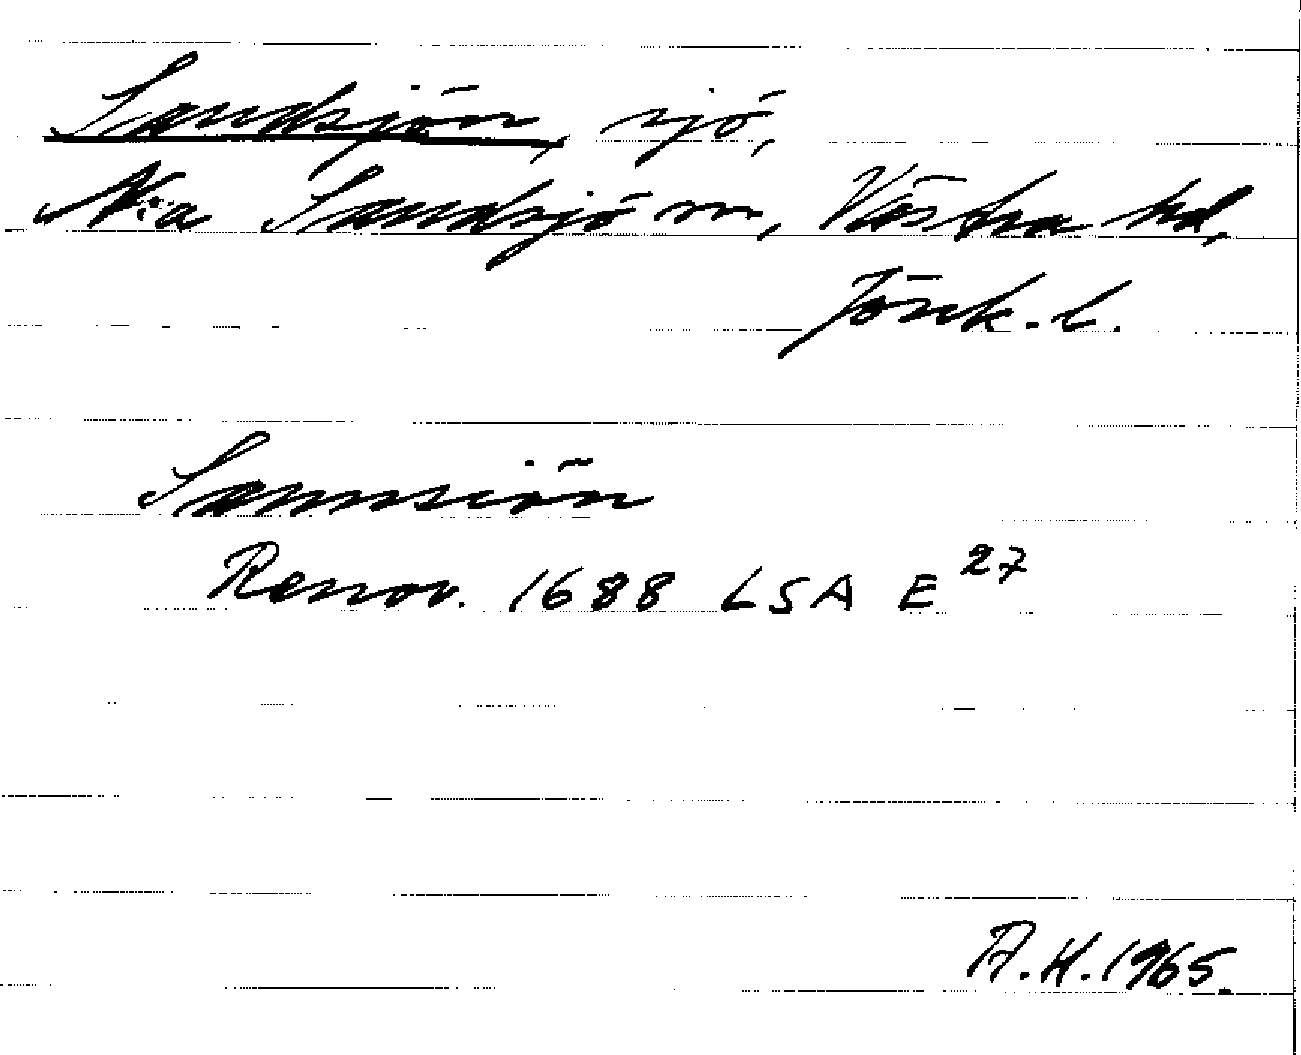 Sandsjön, sjö,
N:a Sandsjö sn, Västra hd,
Jönk. l.
Sannsiön
Renov. 1688 LSA E 27
A.H. 1965.